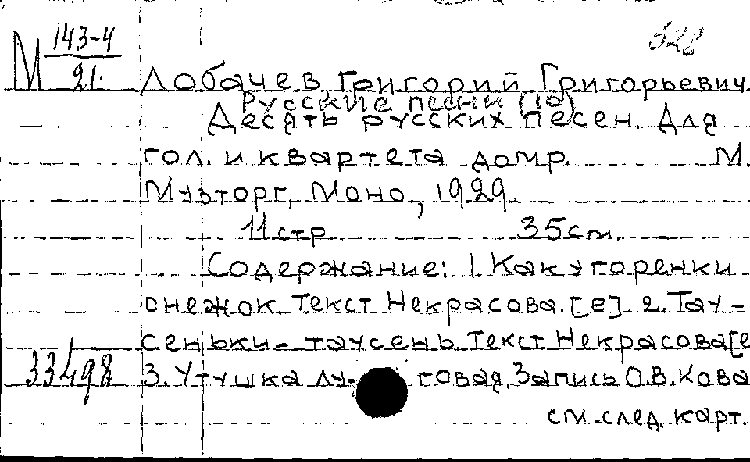 М 143-4/21.
528
Лобачев, Григорий Григорьевич.
Русские песни (10)
Десять русских песен. Для
гол. и квартета домр. М.
Музторг, Моно, 1929.
11 стр. 35 см.
Содержание: 1. Как у горенки
снежок. Текст Некрасова.[е] 2. Тау-
сеньки - таусень. Текст Некрасова[е
33498 3. Утушка лу-говая. Запись О.В. Кова
см. след. карт.